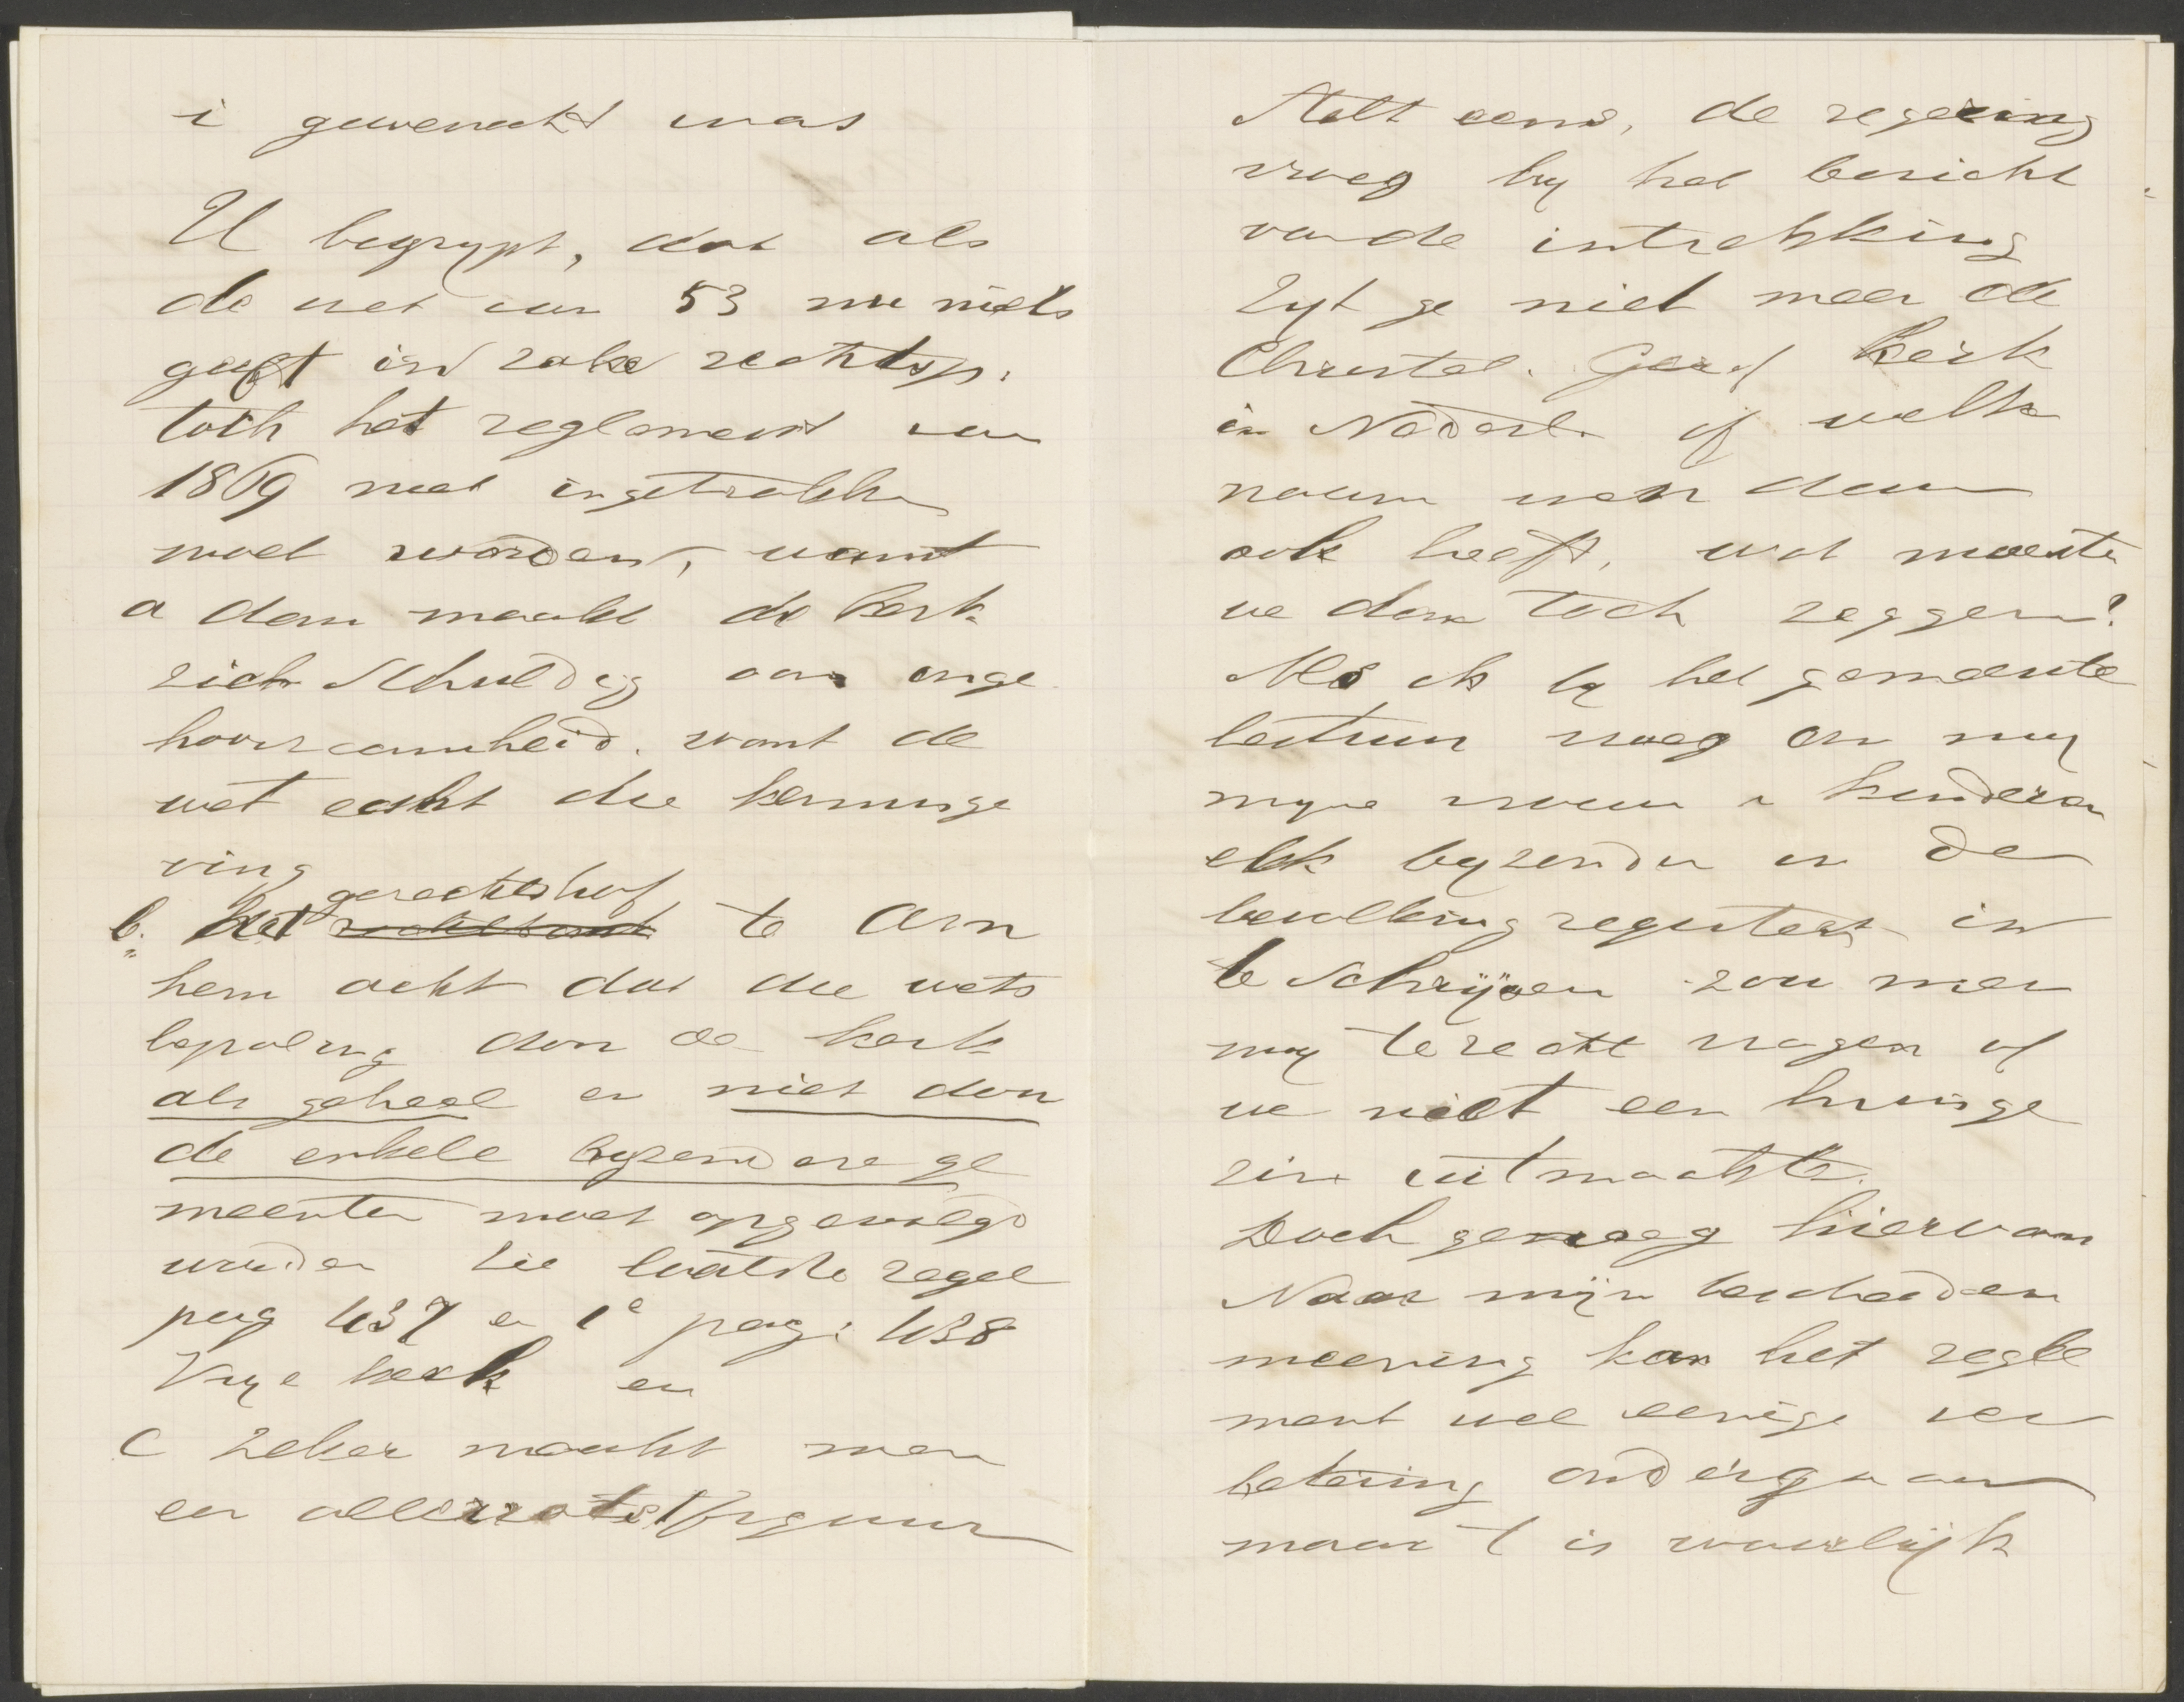 i gewenscht was
U begrypt, dat als
de wet van 53 nu niets
geeft in zake rechtsp.
toch het reglement van
1869 niet ingetrokken
moet worden, want
a dan maakt de kerk
zich schuldig aan onge
hoorzaamheid. want de
wet eischt die kennisge
ving
b. Het gerechtshof te Arn
hem acht dat die wets
bepaling door de kerk
als geheel en niet door
de enkele byzondere ge
meenten moet opgevolgd
worden zie laatste regel
pag 437 en 1e pag. 438
Vrye kerk en
c zeker maakt men
een allerzotst figuur
Stelt eens, de regeering
vroeg by het bericht
van de intrekking
Zyt ge niet meer de
Christel. Geref Kerk
in Nederl. of welk
naam men dan
ook heeft, wat moesten
we dan toch zeggen?
Als ik by het gemeente
bestuur vroeg om my
myne vrouw en kinderen
elk byzonder in de
bevolking registers in
te schrijven zou men
my terecht vragen of
we niet een huisge
zin uitmaakten.
Doch genoeg hiervan
Naar mijn bescheiden
meening kan het regle
ment wel eenige ver
betering ondergaan
maar t is waarlijk